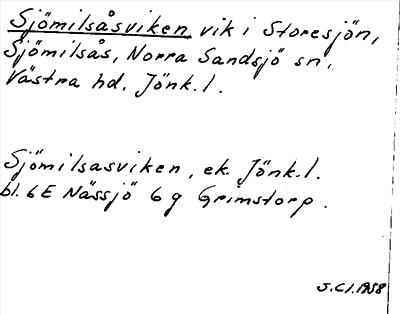 Sjömilsåsviken, vik i Storesjön,
Sjömilsås, Norra Sandsjö sn,
Västra hd. Jönk.l.
Sjömilsasviken, ek. Jönk.l.
bl. 6E Nässjö 6 g Grimstorp.
J.Cl.1958